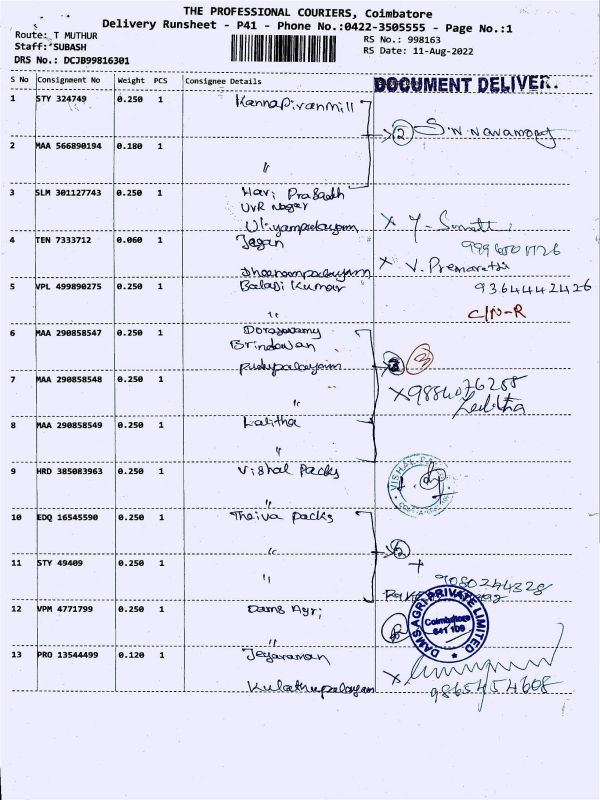 THE PROFESSIONAL COURIERS, Coimbatore
Delivery Runsheet - P41 - Phone No.:0422-3505555 - Page No.:1
Route: T MUTHUR
Staff: SUBASH
DRS No.: DCJB99816301
RS No.: 998163
RS Date: 11-Aug-2022
S No Consignment No Weight PCS Consignee Details
DOCUMENT DELIVER.
1 STY 324749 0.250 1 Kannapiranmill
2 S.N. Navamony
2 MAA 566890194 0.180 1 "
3 SLM 301127743 0.250 1 Hari Prasadh
UVR Nagar
Uliyampalayam X Y.
4 TEN 7333712 0.060 1 Jagan
Dheenampalayam X V.
5 VPL 499890275 0.250 1 Balaji Kumar 9364442426
" C/N-R
6 MAA 290858547 0.250 1 Doraswamy
Brindavan
Pudupalayam 3
7 MAA 290858548 0.250 1 X 9884076288
Lalitha
8 MAA 290858549 0.250 1 Lalitha
"
9 HRD 385083963 0.250 1 Vishal Packs
"
10 EDQ 16545590 0.250 1 Theiva Packs
" 2
11 STY 49409 0.250 1 " 9080244328
12 VPM 4771799 0.250 1 Dams Agri
DAMS AGRI PRIVATE LIMITED
Coimbatore
641 109
13 PRO 13544499 0.120 1 Jeyaraman
Kulathupalayam X 9865454608